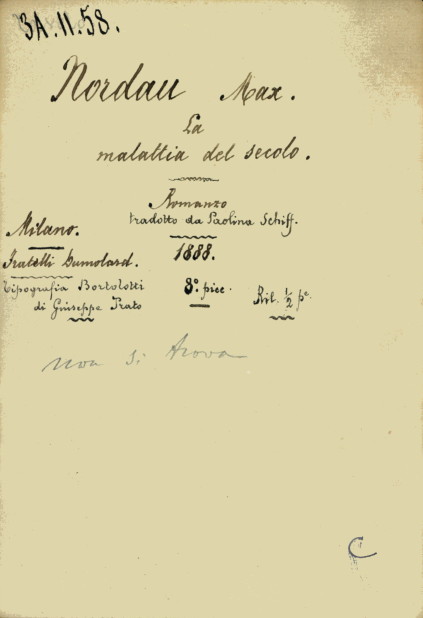 3A.11.58.
Nordau Max.
La
malattia del secolo.
Romanzo
tradotto da Paolina Schiff.
Milano.
Fratelli Dumolard. 1888.
Tipografia Bortolotti 8º picc. Ril. ½ pe.
di Giuseppe Prato
non si trova
C